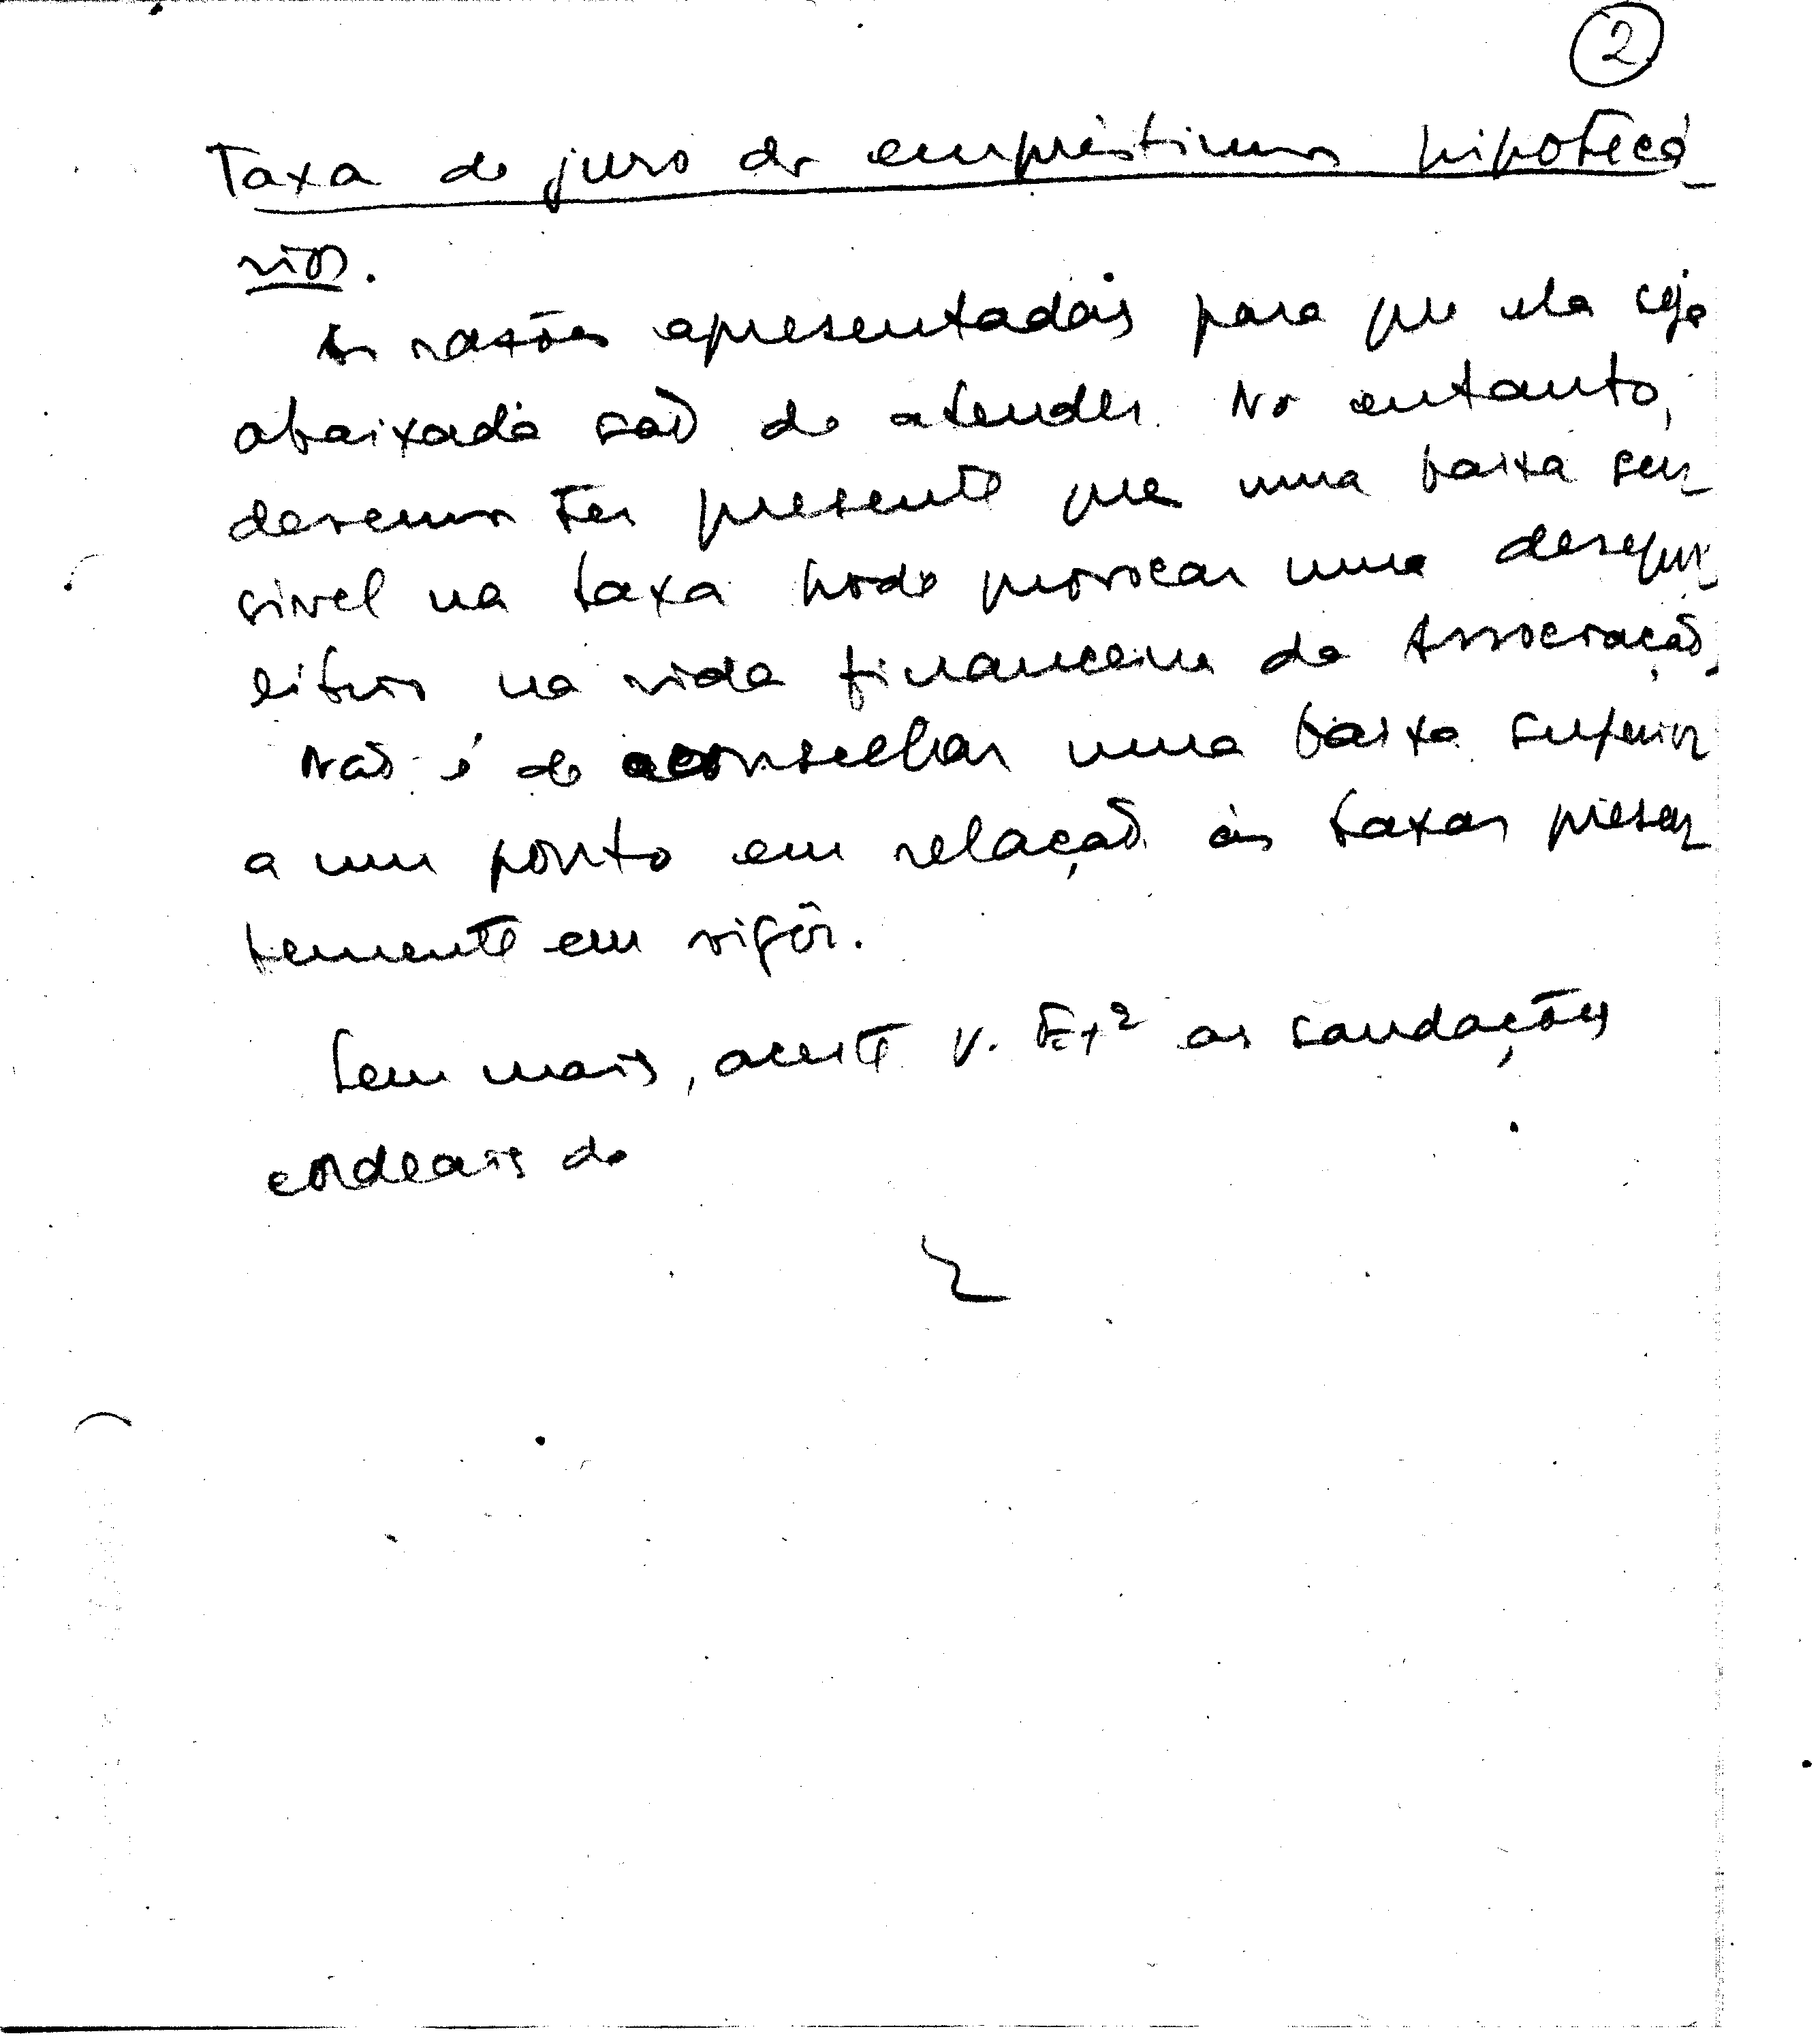 2
Taxa de juro de empréstimos hipotecá-
rios.
As razões apresentadas para que ela seja
abaixada são de atender. No entanto,
devemos ter presente que uma baixa sen-
sivel na taxa pode provocar uma desequi-
librio na vida financeira da Associação.
Não é de aconselhar uma baixa superior
a um ponto em relação ás taxas presen-
temente em vigôr.
Sem mais, aceite V. Exª as saudações
cordeais de